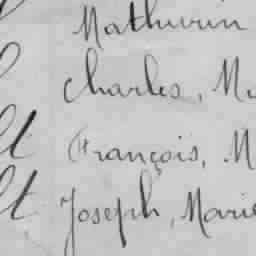 Mathurin
Charles, M
lt François, M
lt Joseph, Marie